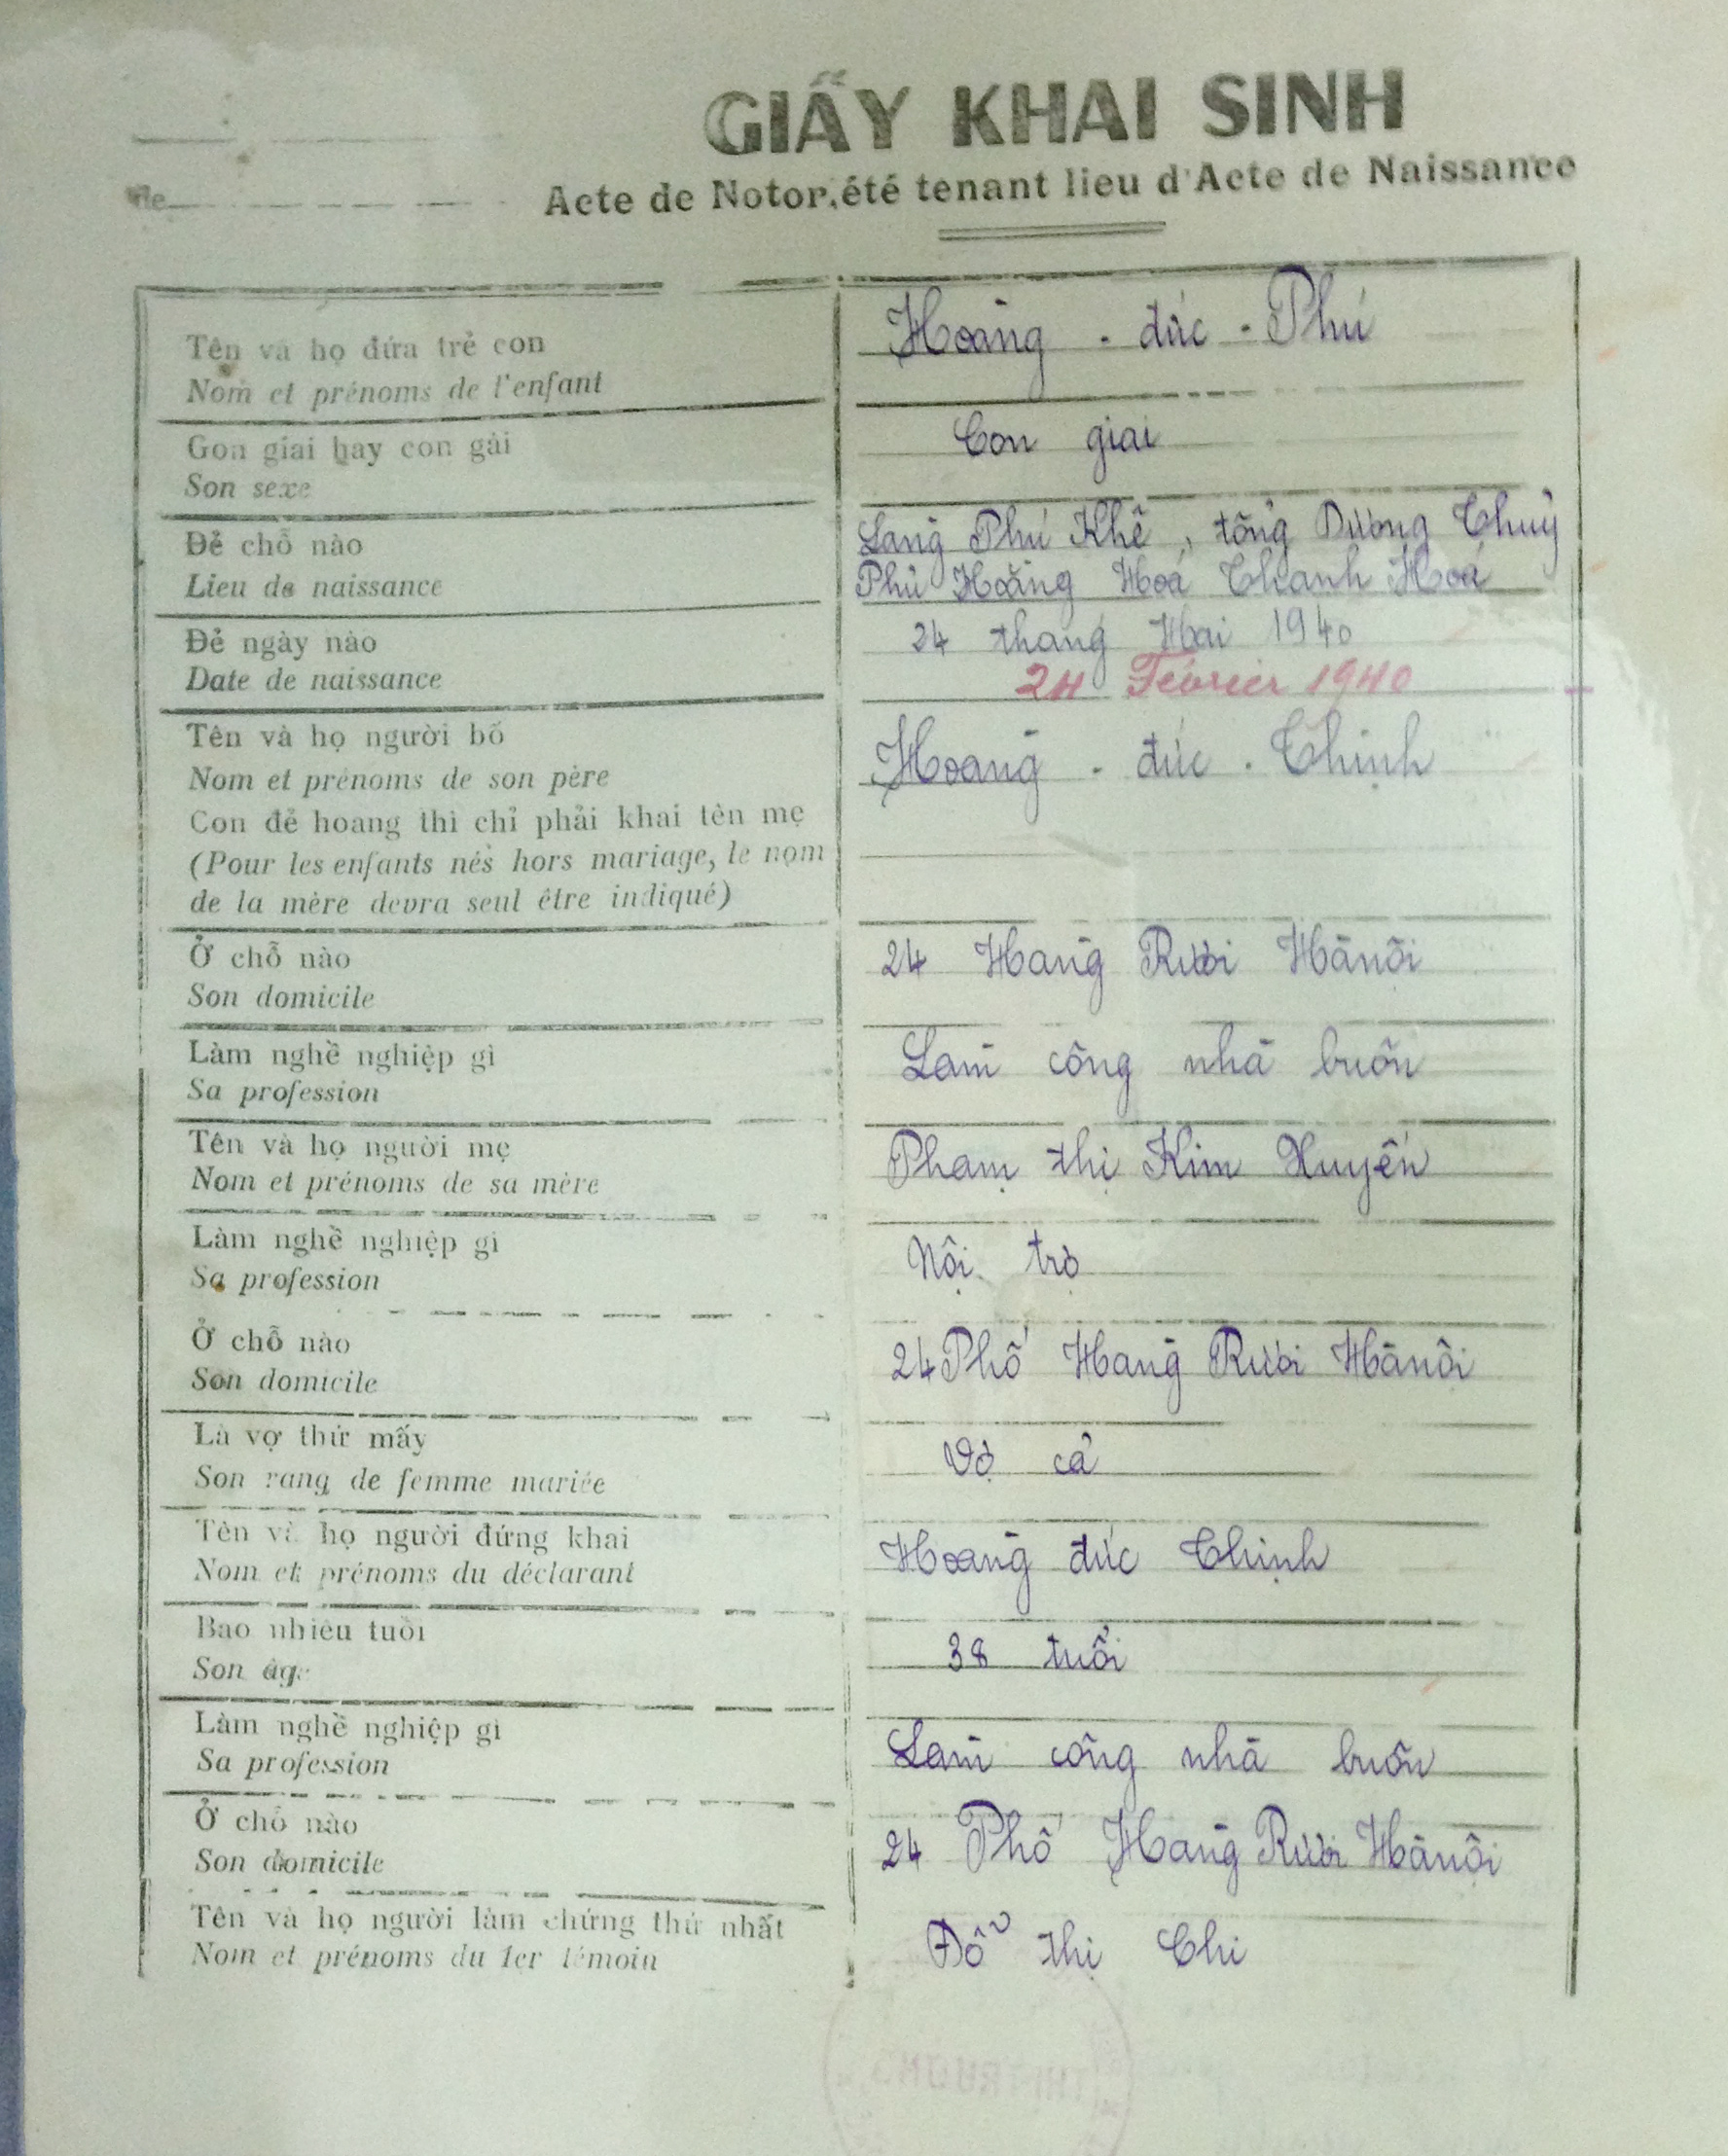 GIẤY KHAI SINH
Acte de Notoriété tenant lieu d'Acte de Naissance
de
Tên và họ đứa trẻ con
Hoàng - đức - Phú
Nom et prénoms de l'enfant
Gon giai hay con gái
Con giai
Son sexe
Đẻ chỗ nào
Làng Phú Khê, tổng Dương Thuỷ
Lieu de naissance
Phủ Hoằng Hoá Thanh Hoá
Đẻ ngày nào
24 tháng Hai 1940
Date de naissance
24 Février 1940
Tên và họ người bố
Hoàng - đức - Thịnh
Nom et prénoms de son père
Con đẻ hoang thì chỉ phải khai tên mẹ
(Pour les enfants nés hors mariage, le nom
de la mère devra seul être indiqué)
Ở chỗ nào
24 Hàng Rươi Hànội
Son domicile
Làm nghề nghiệp gì
Làm công nhà buôn
Sa profession
Tên và họ người mẹ
Phạm thị Kim Xuyến
Nom et prénoms de sa mère
Làm nghề nghiệp gì
Nội trợ
Sa profession
Ở chỗ nào
24 Phố Hàng Rươi Hànội
Son domicile
Là vợ thứ mấy
Vợ cả
Son rang de femme mariée
Tên và họ người đứng khai
Hoàng đức Thịnh
Nom et prénoms du déclarant
Bao nhiêu tuổi
38 tuổi
Son âge
Làm nghề nghiệp gì
Làm công nhà buôn
Sa profession
Ở chỗ nào
24 Phố Hàng Rươi Hànội
Son domicile
Tên và họ người làm chứng thứ nhất
Đỗ thị Chi
Nom et prénoms du 1er témoin